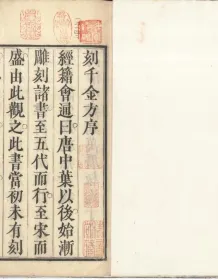 刻千金方序
經籍會通曰唐中葉以後始漸
雕刻諸書至五代而行至宋而
盛由此觀之此書當初未有刻